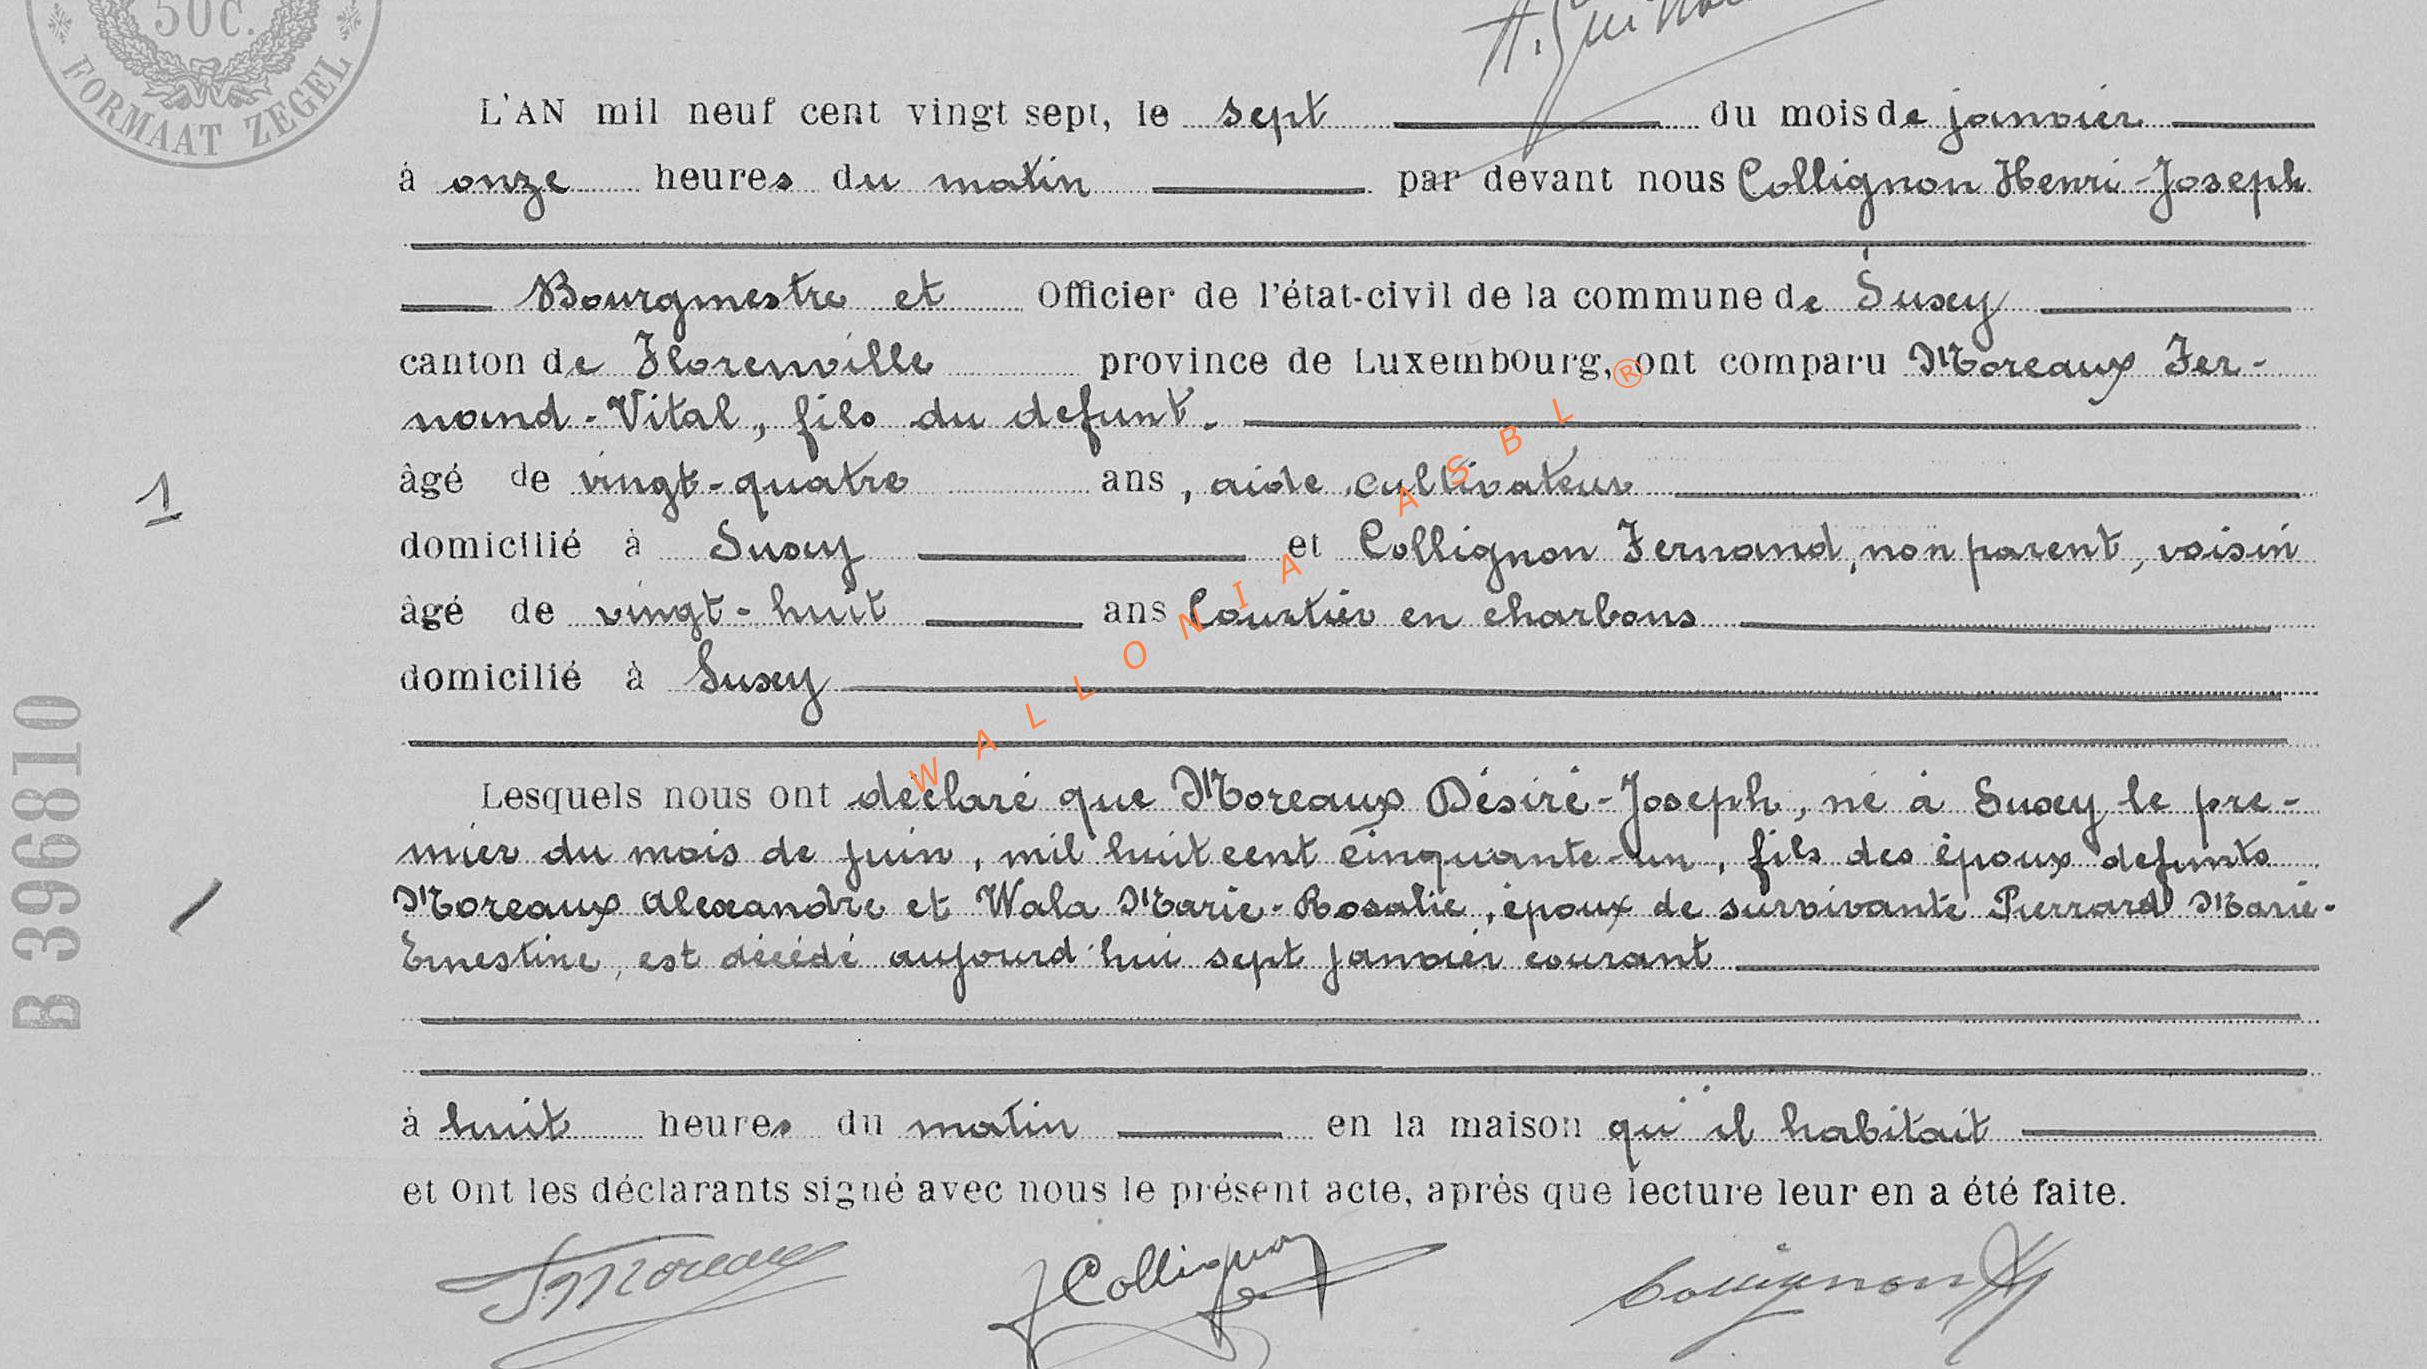 50C.
FORMAAT ZEGEL
L'AN mil neuf cent vingt sept, le sept du mois de janvier
à onze heures du matin par devant nous Collignon Henri-Joseph
Bourgmestre et Officier de l'état-civil de la commune de Suxy
canton de Florenville province de Luxembourg, ont comparu Moreaux Fer-
nand-Vital, fils du defunt.
âgé de vingt-quatre ans, aide cultivateur
1
domicilié à Suxy et Collignon Fernand, non parent, voisin
âgé de vingt-huit ans Courtier en charbons
domicilié à Suxy
WALLONIA ASBL ®
Lesquels nous ont déclaré que Moreaux Désiré-Joseph, né à Suxy le pre-
mier du mois de juin, mil huit cent cinquante-un, fils des époux defunts
Moreaux Alexandre et Wala Marie-Rosalie, époux de survivante Pierrard Marie-
Ernestine, est décédé aujourd'hui sept janvier courant
B 396810
à huit heures du matin en la maison qu'il habitait
et ont les déclarants signé avec nous le présent acte, après que lecture leur en a été faite.
F Moreaux J Collignon Collignon HJ